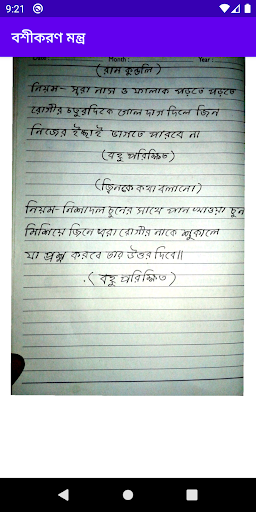 9:21
বশীকরণ মন্ত্র
Month :
Year :
(রাম কুন্ডলি)
নিয়ম- সূরা নাস ও ফালাক পড়তে পড়তে
রোগীর চতুরদিকে গোল দাগ দিলে জিন
নিজের ইচ্ছাই ভাগতে পারবে না
(বহু পরিক্ষিত)
(জ্বিনকে কথা বলানো)
নিয়ম- নিশাদল চুনের সাথে পান খাওয়া চুন
মিশিয়ে জিনে ধরা রোগীর নাকে শুকালে
যা প্রশ্ন করবে তার উত্তর দিবে॥
.(বহু পরিক্ষিত)